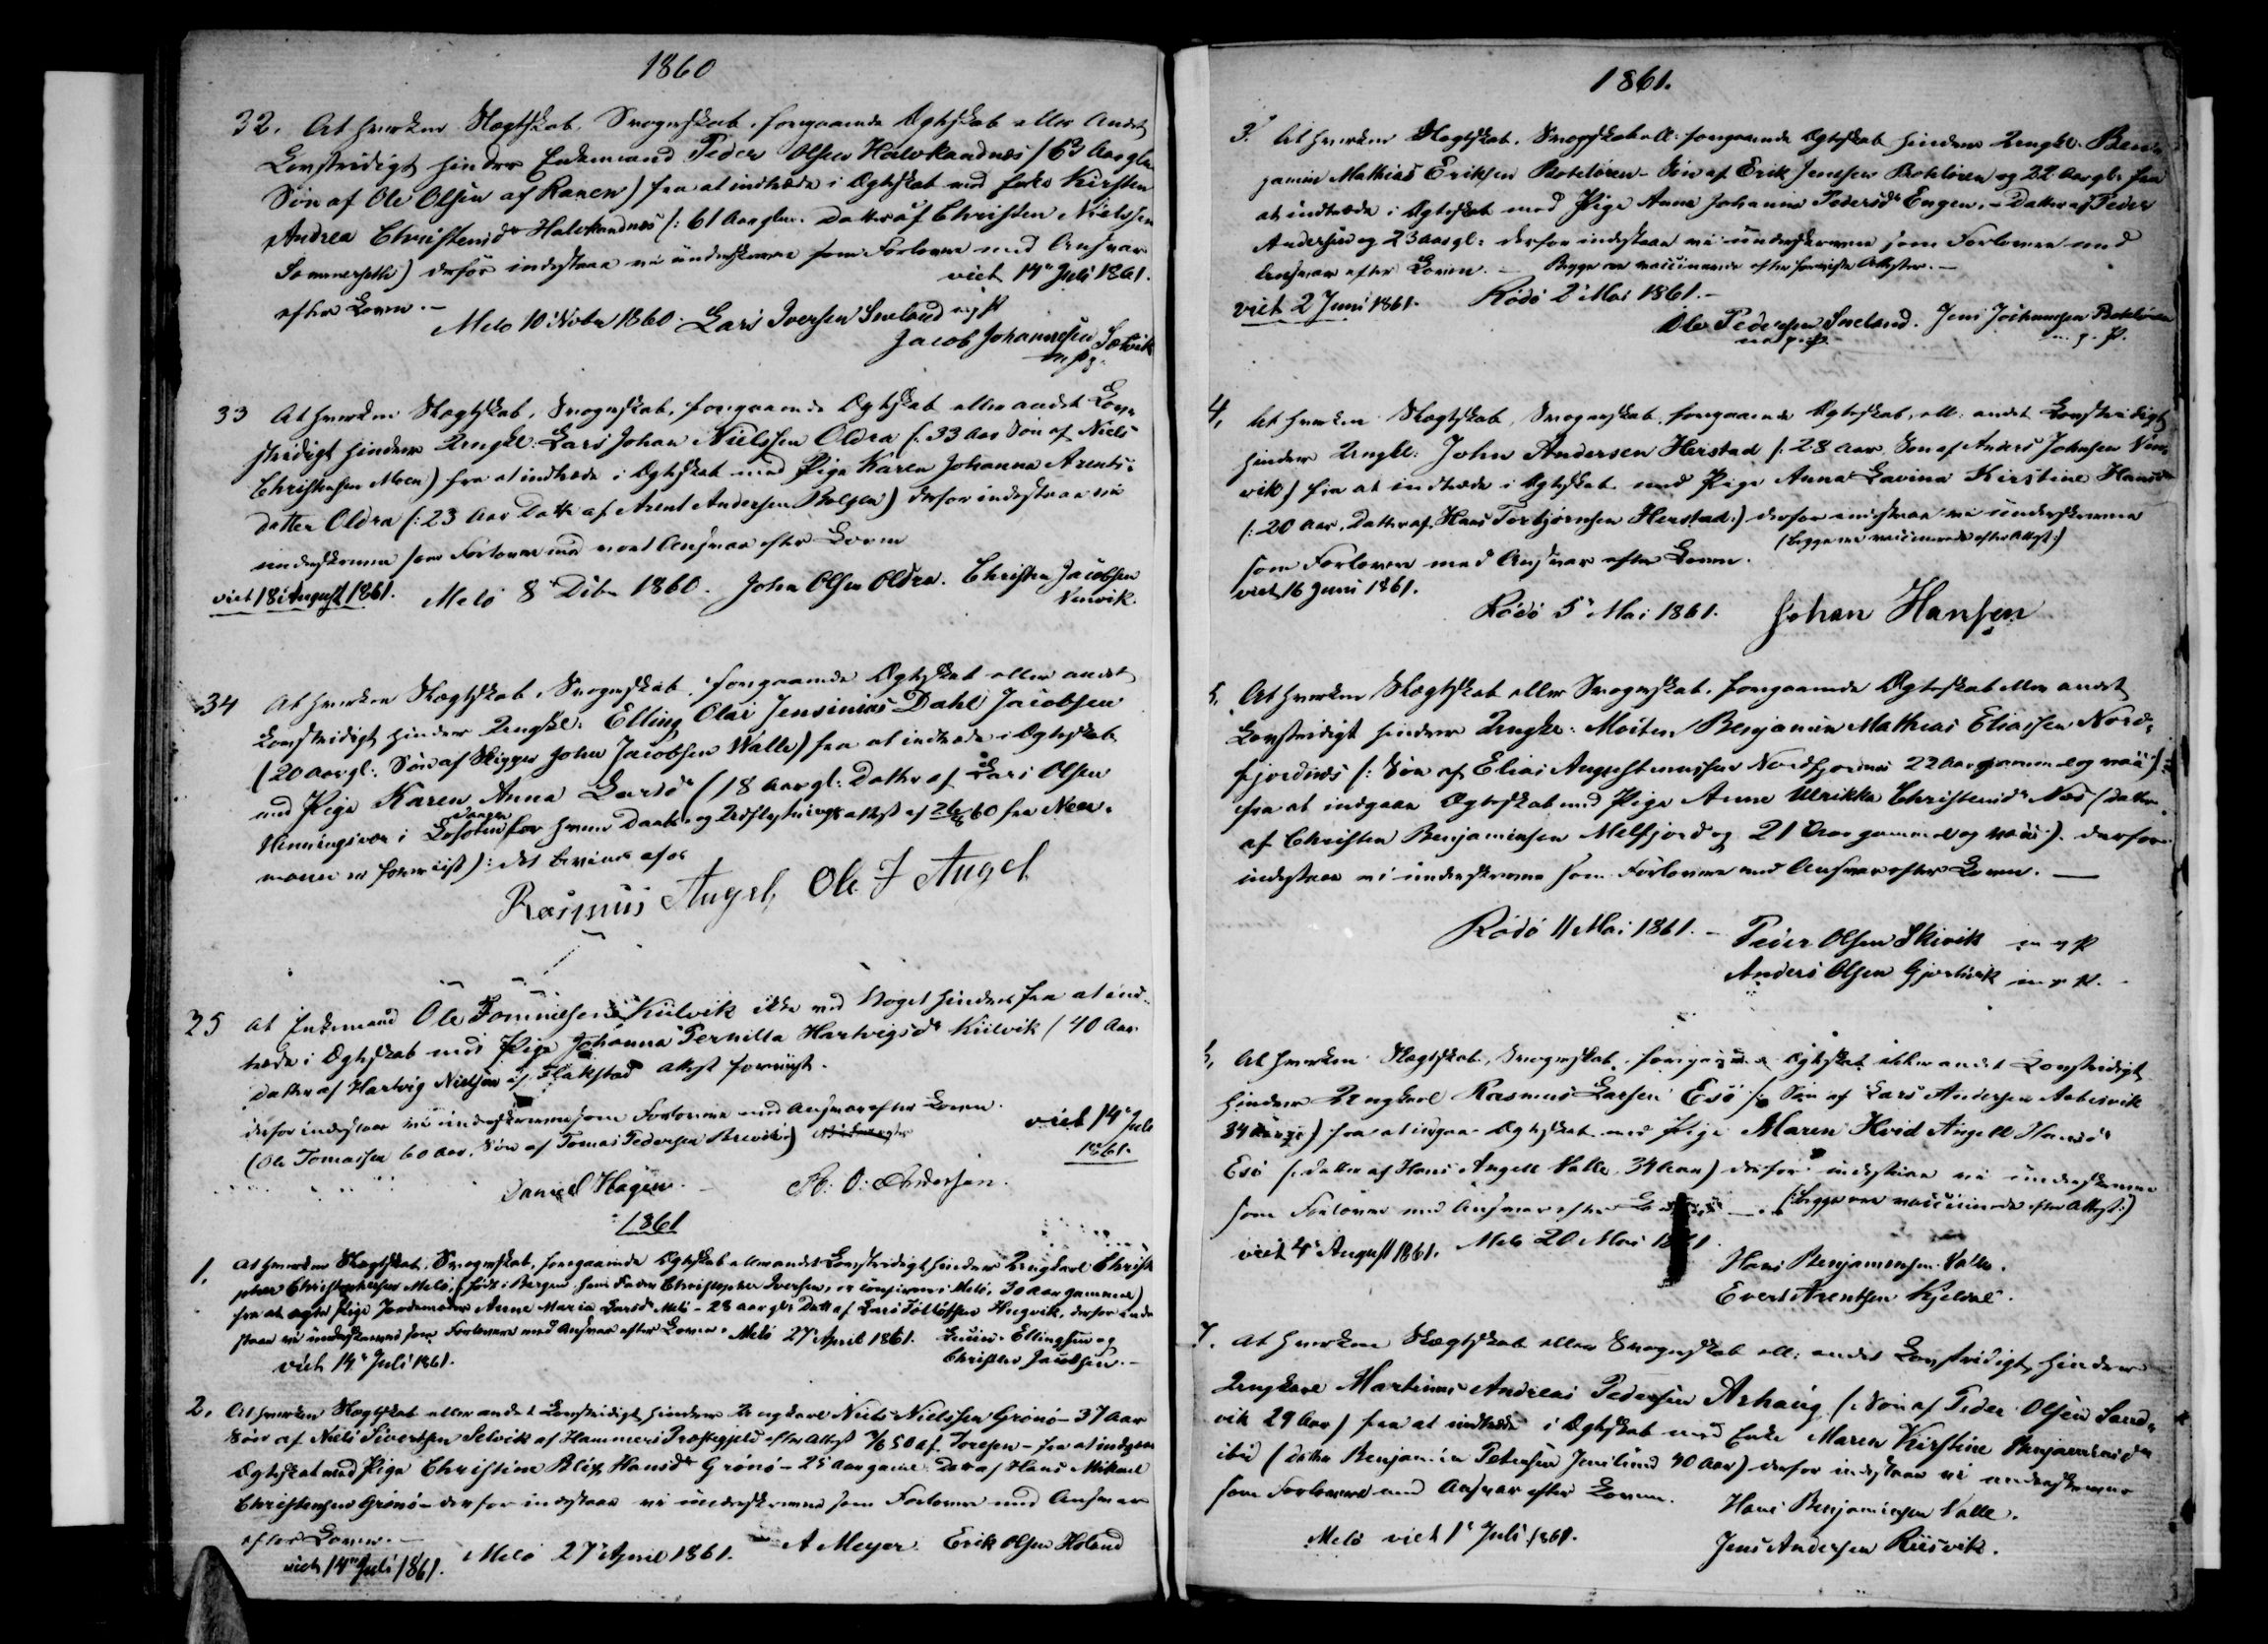 1860
32. At hverken Slægtskab, Svogerskab, foregaaende Ægteskab eller Andet
Lovstridigt hindrer Enkemand Peder Olsen Halvkandnæs (63 Aar gl.
Søn af Ole Olsen af Ranen) fra at indtræde i Ægteskab med Enke Kirsten
Andrea Christensdr Halvkandnæs (: 61 Aar glm. Datter af Christen Nielssen
derfor indestaae vi underskrevne som Forlovere med Ansvar
viet 14de Juli 1861.
efter Loven.—
Melö 10 Novbr 1860. Lars Iversen Sneland m p
Jacob Johannesen Sætvik
m p
33 At hverken Slægtskab, Svogerskab, foregaaende Ægteskab eller andet Lov-
stridigt hindrer Ungkl: Lars Johan Nielssen Oldra (: 33 Aar Søn af Niels
Christensen Moen) fra at indtræde i Ægteskab med Pige Karen Johanna Arents-
datter Oldra (: 23 Aar Dattr af Arent Andersen) derfor indestaae vi
underskrevne som Forlovere med Ansvar efter Loven
viet 18 August 1861. Melö 8 Dcbr 1860. John Olsen Oldra. Christen Jacobsen
34 At hverken Slægtskab, Svogerskab, foregaaende Ægteskab eller andet
Lovstridigt hindrer Ungkl: Elling Olai Jensinius Dahl Jacobsen
(20 Aar gl: Søn af Skipper John Jacobsen Walle) fra at indtræde i Ægteskab
med Pige Karen Anna Larsdr (18 Aar gl: Datter af Lars Olsen
Henningsvær i Lofoten for hvem Daabs og Udflytningsattest af 26/8 60 fra
er foreviist):
Rasmus Angel, Ole J Angel
35 At Enkemand Ole Tommesen Kiilvik ikke ved Noget hindres fra at ind-
træde i Ægteskab med Pige Johanna Pernilla Hartvigsdr Kiilvik (40 Aar
Datter af Hartvig Nielsen af Flakstad Attest foreviist.
derfor indestaae vi underskrevne som Forlovere med Ansvar efter Loven.
viet 14de Juli
(Ole Tomassen 60 Aar, Søn af Tomas Pedersen)
1861.
Daniel Hagen. O. Andersen.
1861
1. At hverken Slægtskab, Svogerskab, foregaaende Ægteskab eller andet Lovstridigt hindrer Ungkarl Christo
pher Christophersen Melö, (født i Bergen hans Fader Christopher Iversen, er confirm: i Melö, 30 Aar gammel)
fra at ægte Pige Jordemoder Anne Maria Larsdr Melö - 28 Aar gl: Dattr af Lars derfor inde
staae vi underskrevne som Forlovere med Ansvar efter Loven. Melö 27 April 1861. Ellingsen og
viet 14de Juli 1861. Christen Jacobsen.—
2. At hverken Slægtskab eller andet Lovstridigt hindrer Ungkarl Niels Nielssen Grönö - 37 Aar
Søn af Niels Sivertsen Selvik af Hammers Præstegjeld efter Attest fra at indgaae
Ægteskab med Pige Christine Blix Hansdr Grönö - 25 Aar gamle Dattr af Hans Mikael
Christensen Grönö - derfor indestaae vi underskrevne som Forlovere med Ansvar
efter Loven.—
viet 14de Juli 1861. Melö 27 April 1861. A Meyer. Erik Olsen Holand
1861.
3. At hverken Slægtskab, Svogerskab ell: foregaaende Ægteskab hindrer Ungkl: Ben-
jamin Mathias Eriksen Boteløren - Søn af Erik Jensen Boteløren og 22 Aar gl: fra
at indtræde i Ægteskab med Pige Anna Johanna Pedersdr Engen, - Datter af Peder
Andersen og 23 Aar gl: derfor indestaae vi underskrevne som Forlovere med
Ansvar efter Loven. — Begge ere vaccinerede efter foreviste Attester.—
viet 2 Juni 1861. Rödö 2 Mai 1861.—
Ole Pedersen Sneland. Jens Jochumsen Boteløren
m. p. P.
4. At hverken Slægtskab, Svogerskab, foregaaende Ægteskab, ell: andet Lovstridigt
hindrer Ungkl: John Andersen Herstad (: 28 Aar, Søn af Anders Johnsen
vik) fra at indtræde i Ægteskab med Pige Anna Lavina Kirstine Hansdr
(: 20 Aar, Datter af Hans Torbjørnsen Herstad:) derfor indestaae vi underskrevne
(begge ere vaccinerede efter Attest:)
som Forlovere med Ansvar efter Loven.
viet 16 Juni 1861.
Rödö 5 Mai 1861. Johan Hansen
5. At hverken Slægtskab eller Svogerskab, foregaaende Ægteskab eller andet
Lovstridigt hindrer Ungkl: Morten Benjamin Mathias Eliassen Nord-
fjordnæs (: Søn af Elias Augustinussen Nordfjordnæs 22 Aar gammel og vacc:)
fra at indgaae Ægteskab med Pige Anne Ulrikka Christensdr Næs (Datter
af Christen Benjaminsen Melfjord og 21 Aar gammel og vacc:). derfor
indestaae vi underskrevne som Forlovere med Ansvar efter Loven. —
Rödö 11 Mai 1861.— Peder Olsen Skivik m p P
Anders Olsen Gjervik m p P.
6. At hverken Slægtskab, Svogerskab, foregaaende Ægteskab eller andet Lovstridigt
hindrer Ungkarl Rasmus Larsen Esö (: Søn af Lars Andersen
34 Aar gl) fra at indgaae Ægteskab med Pige Maren Hvid Angell Hansdr
Esö (: Datter af Hans Angell Valle, 34 Aar) derfor indestaae vi underskrevne
som Forlovere med Ansvar efter (: begge ere vaccinerede efter Attest:)
viet 4 August 1861. Melö 20 Mai 1861
Hans Benjaminsen Valle.
Evert Arentsen Kjeldal.
7. At hverken Slægtskab eller Svogerskab ell: andet Lovstridigt hindrer
Ungkarl Martinus Andreas Pedersen Arhaug (: Søn af Peder Olsen Sand-
vik 29 Aar) fra at indtræde i Ægteskab med Enke Maren Kirstine Benjaminsdr
ibid (Datter Benjamin Petersen 40 Aar) derfor indestaae vi underskrevne
som Forlovere med Ansvar efter Loven. Hans Benjaminsen Valle.
Melö viet 1 Juli 1861. Jens Andersen Riisvik.